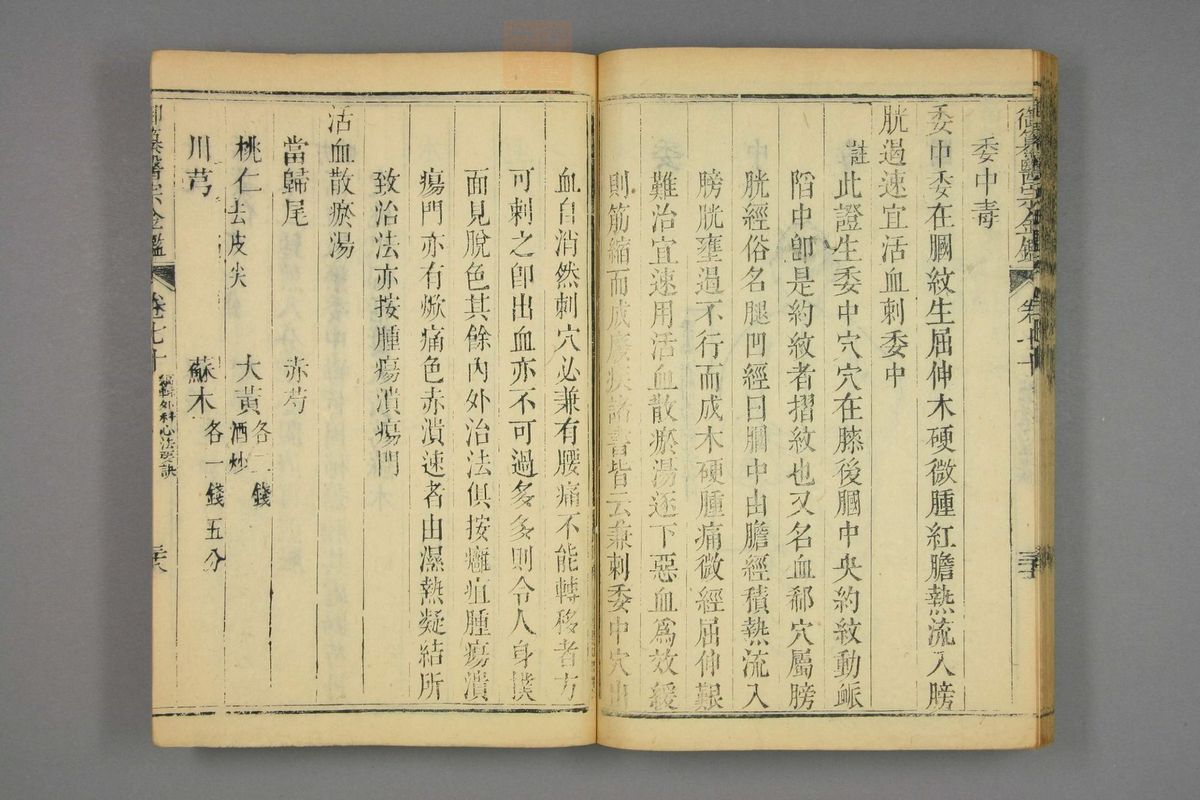 御纂醫宗金鑑 卷七十
委中毒
委中委在膕紋生屈伸木硬微腫紅膽熱流入膀
胱遏速宜活血刺委中
註此證生委中穴穴在膝後膕中央約紋動脈
陷中卽是約紋者摺紋也又名血郗穴屬膀
胱經俗名腿凹經曰膕中由膽經積熱流入
膀胱壅遏不行而成木硬腫痛微經屈伸艱
難治宜速用活血散瘀湯逐下惡血爲效緩
則筋縮而成廢疾諸書皆云兼刺委中穴出
血自消然刺穴必兼有腰痛不能轉移者方
可刺之卽出血亦不可過多多則令人身僕
面見脫色其餘內外治法俱按癰疽腫瘍潰
瘍門亦有焮痛色赤潰速者由濕熱凝結所
致治法亦按腫瘍潰瘍門
活血散瘀湯
當歸尾 赤芍
桃仁去皮尖 大黃酒炒各二錢
川芎 蘇木各一錢五分
御纂醫宗金鑑 卷七十 編輯外科心法要訣